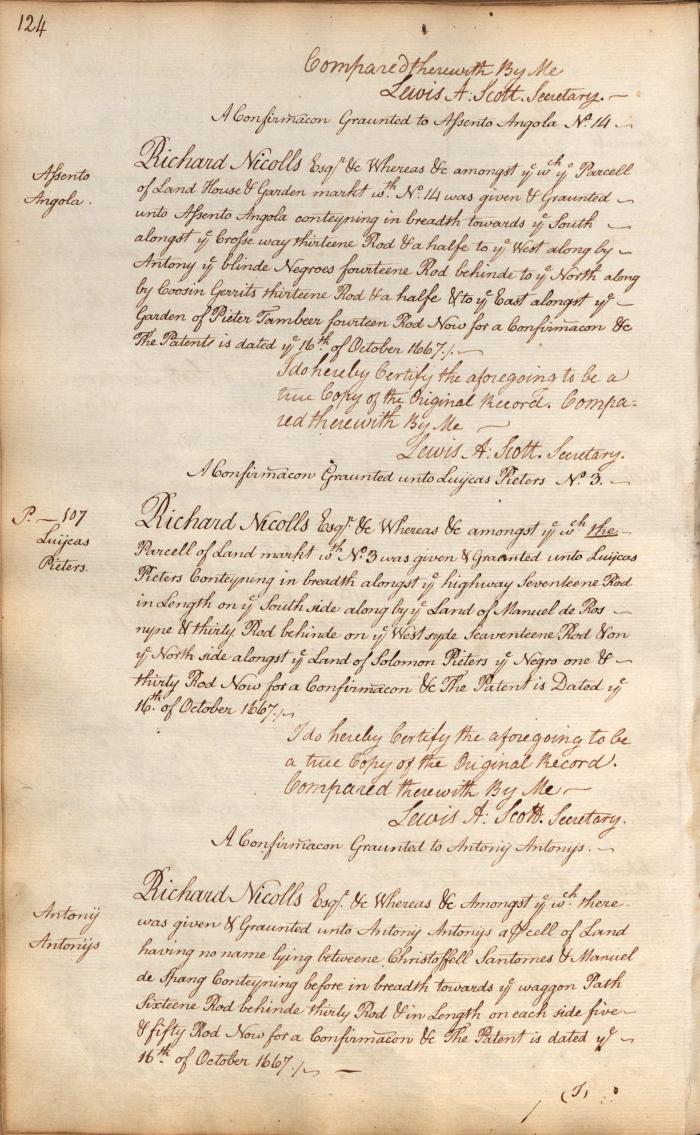 124
Compared therewith By Me
Lewis A: Scott. Secretary. —
A Confirmacon Graunted to Assento Angola No. 14 —
Assento
Angola.
Richard Nicolls Esqr. &c Whereas &c amongst ye. wch ye. Parcell
of Land House & Garden markt wth. No. 14 was given & Graunted —
unto Assento Angola conteyning in breadth towards ye South —
alongst ye Crosse way thirteene Rod & a halfe to ye West along by —
Antony ye blinde Negroes fourteene Rod behinde to ye North along
by Coosin Gerrits thirteene Rod & a halfe & to ye East alongst ye —
Garden of Pieter Tambeer fourteen Rod Now for a Confirmacon &c
The Patents is dated ye 16th. of October 1667./. —
I do hereby Certify the aforegoing to be a
true Copy of the Original Record. Compa=
red therewith By Me —
Lewis A: Scott. Secretary.
A Confirmacon Graunted unto Luijcas Pieters No. 3. —
P. — 107
Luijcas
Pieters.
Richard Nicolls Esqr. &c Whereas &c amongst ye wch the —
Parcell of Land markt wth No. 3 was given & Graunted unto Luijcas
Pieters Conteyning in breadth alongst ye highway Seventeene Rod
in Length on ye South side along by ye Land of Manuel de Ros —
nyne & thirty Rod behinde on ye West syde Seaventeene Rod & on
ye North side alongst ye Land of Solomon Pieters ye Negro one & —
thirty Rod Now for a Confirmacon &c The Patent is Dated ye
16th. of October 1667./. —
I do hereby Certify the aforegoing to be
a true Copy of the Original Record.
Compared therewith By Me —
Lewis A: Scott. Secretary.
A Confirmacon Graunted to Antonij Antonys. —
Antonij
Antonijs
Richard Nicolls Esqr. &c Whereas &c Amongst ye wch. there —
was given & Graunted unto Antony Antonys a Pcell of Land
having no name lying betweene Christoffell Santomes & Manuel
de Spang Conteyning before in breadth towards ye waggon Path
Sixteene Rod behinde thirty Rod & in Length on each side five —
& fifty Rod Now for a Confirmacon &c The Patent is dated ye —
16th of October 1667./. —